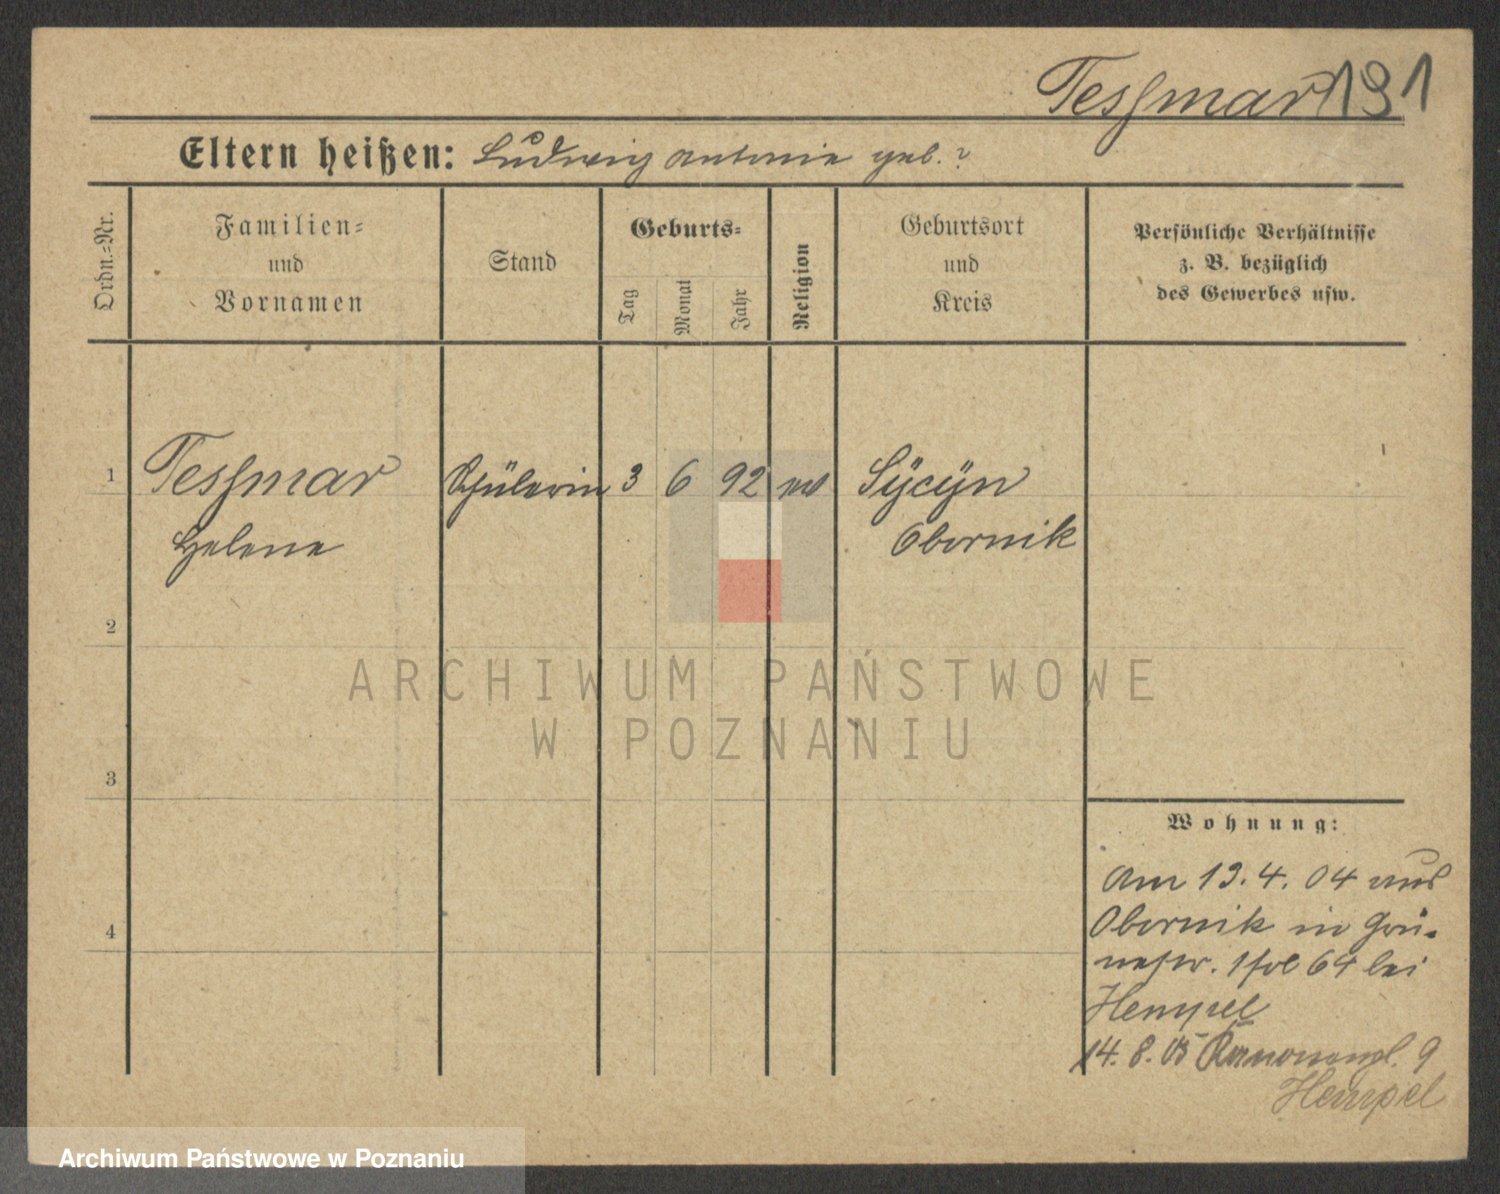 Teßmar 191
Eltern heißen: Ludwig Antonie geb. ?
Ordn.-Nr.
Familien-
und
Vornamen
Stand
Geburts-
Tag
Monat
Jahr
Religion
Geburtsort
und
Kreis
Persönliche Verhältnisse
z. B. bezüglich
des Gewerbes usw.
1 Teßmar Schülerin 3 6 92 ev Sÿcÿn
Helene Obornik
2
3
4
Wohnung:
Am 13.4.04 aus
Obornik in
64 bei
Hempel
14.8.05 Kanonenpl. 9
Hempel
ARCHIWUM PAŃSTWOWE
W POZNANIU
Archiwum Państwowe w Poznaniu